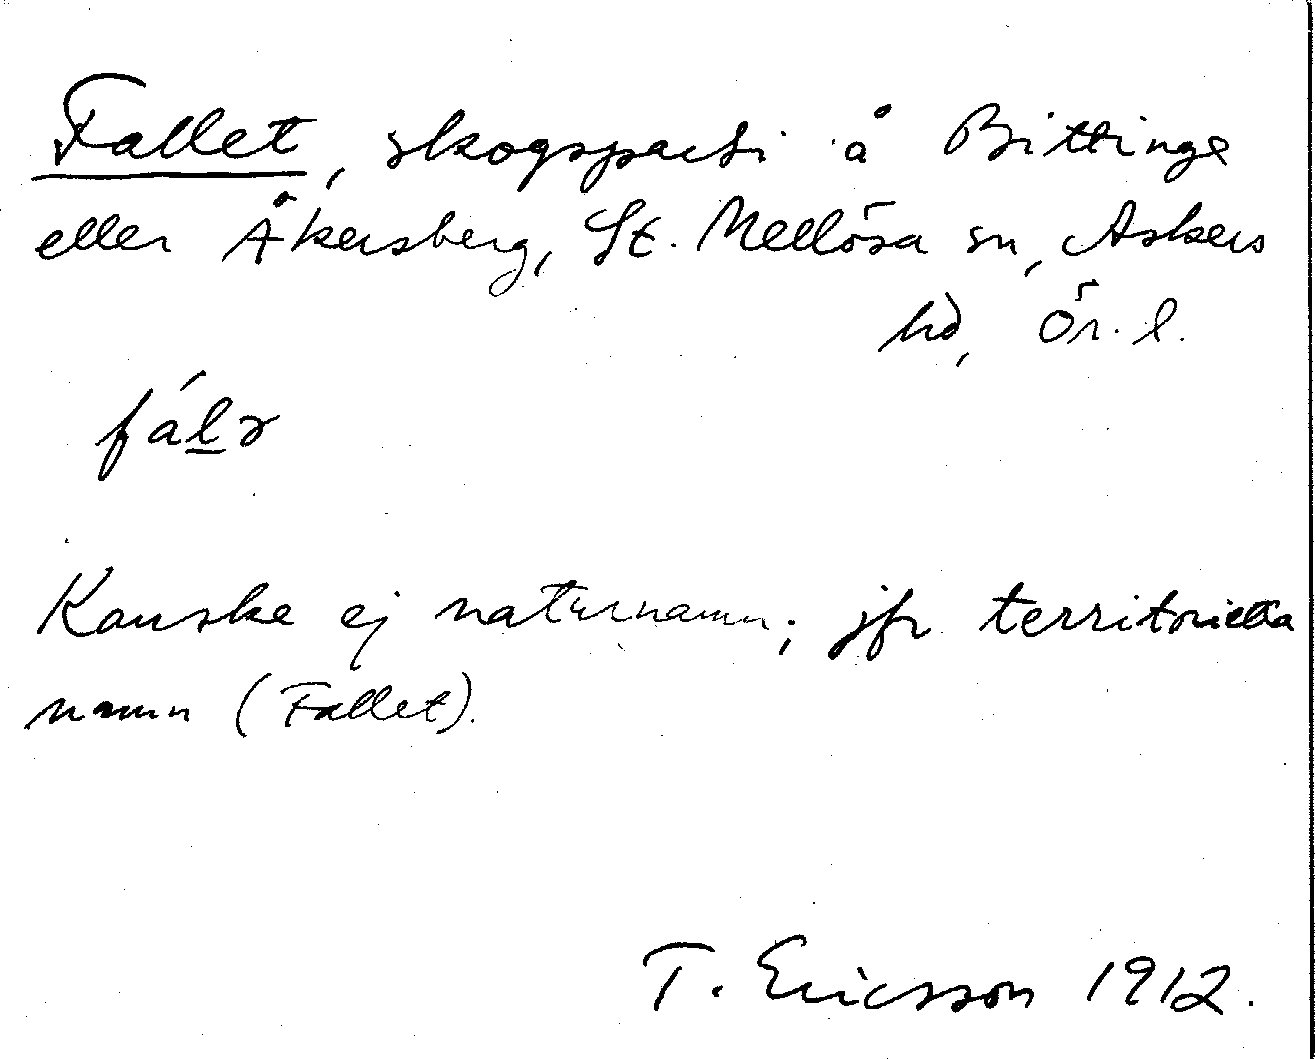 Fallet, skogsparti å Bittinge
eller Åkersberg, St. Mellösa sn, Askers
hd, Ör. l.
fálə
Kanske ej naturnamn; jfr territoriella
namn (Fallet).
T. Ericsson 1912.